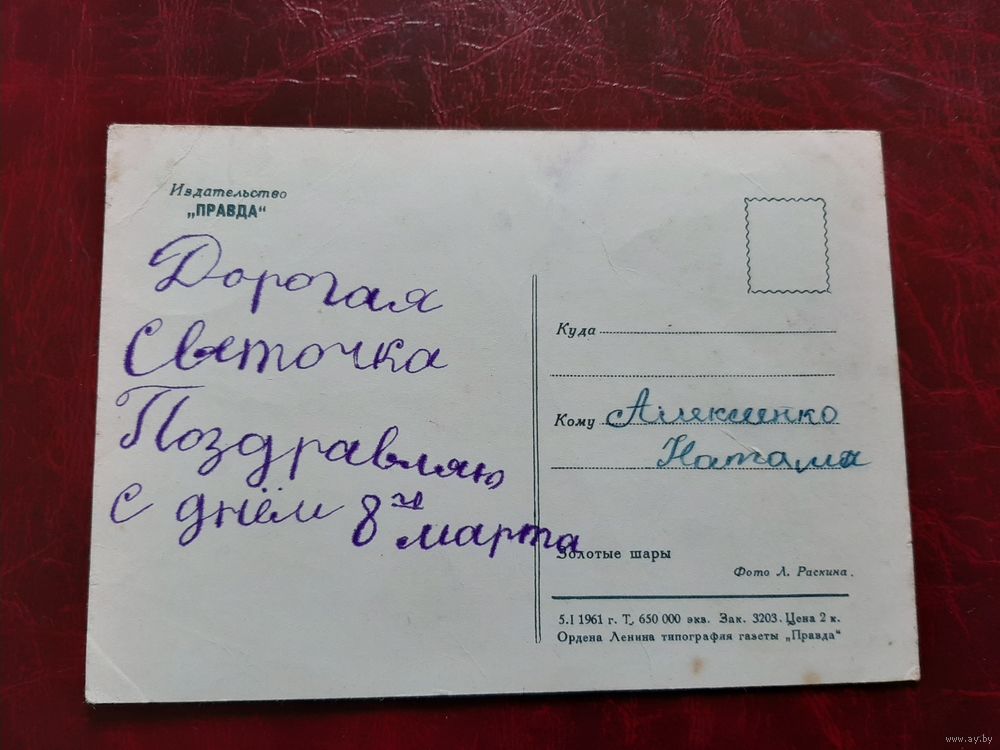 Издательство
„ПРАВДА“
Дорогая
Светочка
Поздравляю
с днём 8го
марта
Куда
Кому Алексенко
Наташа
Золотые шары
Фото Л. Раскина.
5.I 1961 г. Т. 650 000 экз. Зак. 3203. Цена 2 к.
Ордена Ленина типография газеты „Правда“
www.ay.by